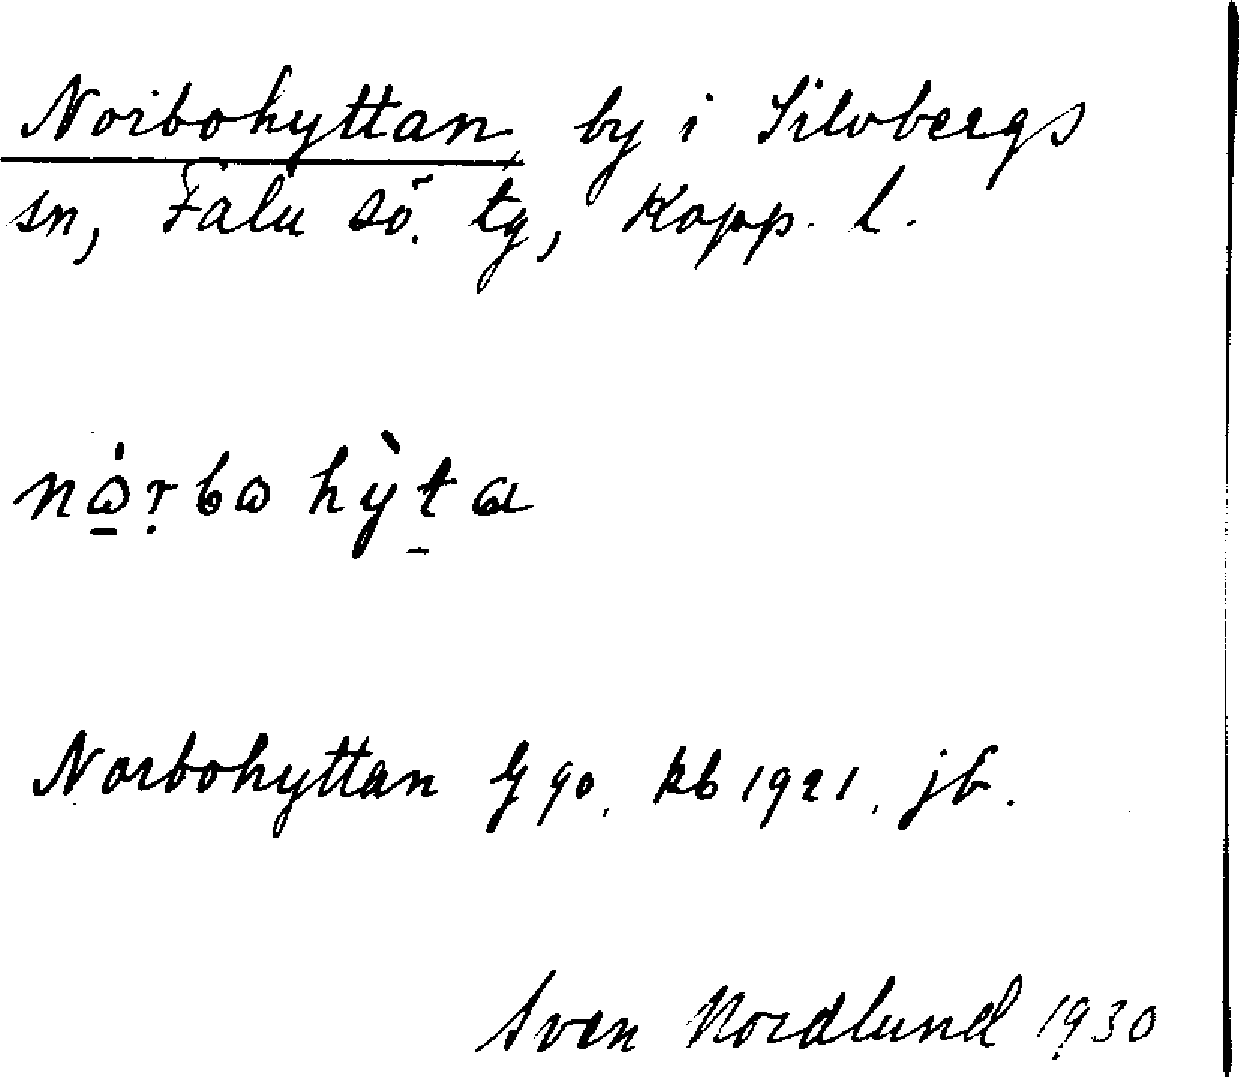 Norbohyttan, by i Silvbergs
sn, Falu sö. tg, Kopp. l.
nὼ̲ṛbω hỳt̲a
Norbohyttan Gg 90. kb 1921. jb.
Sven Nordlund 1930